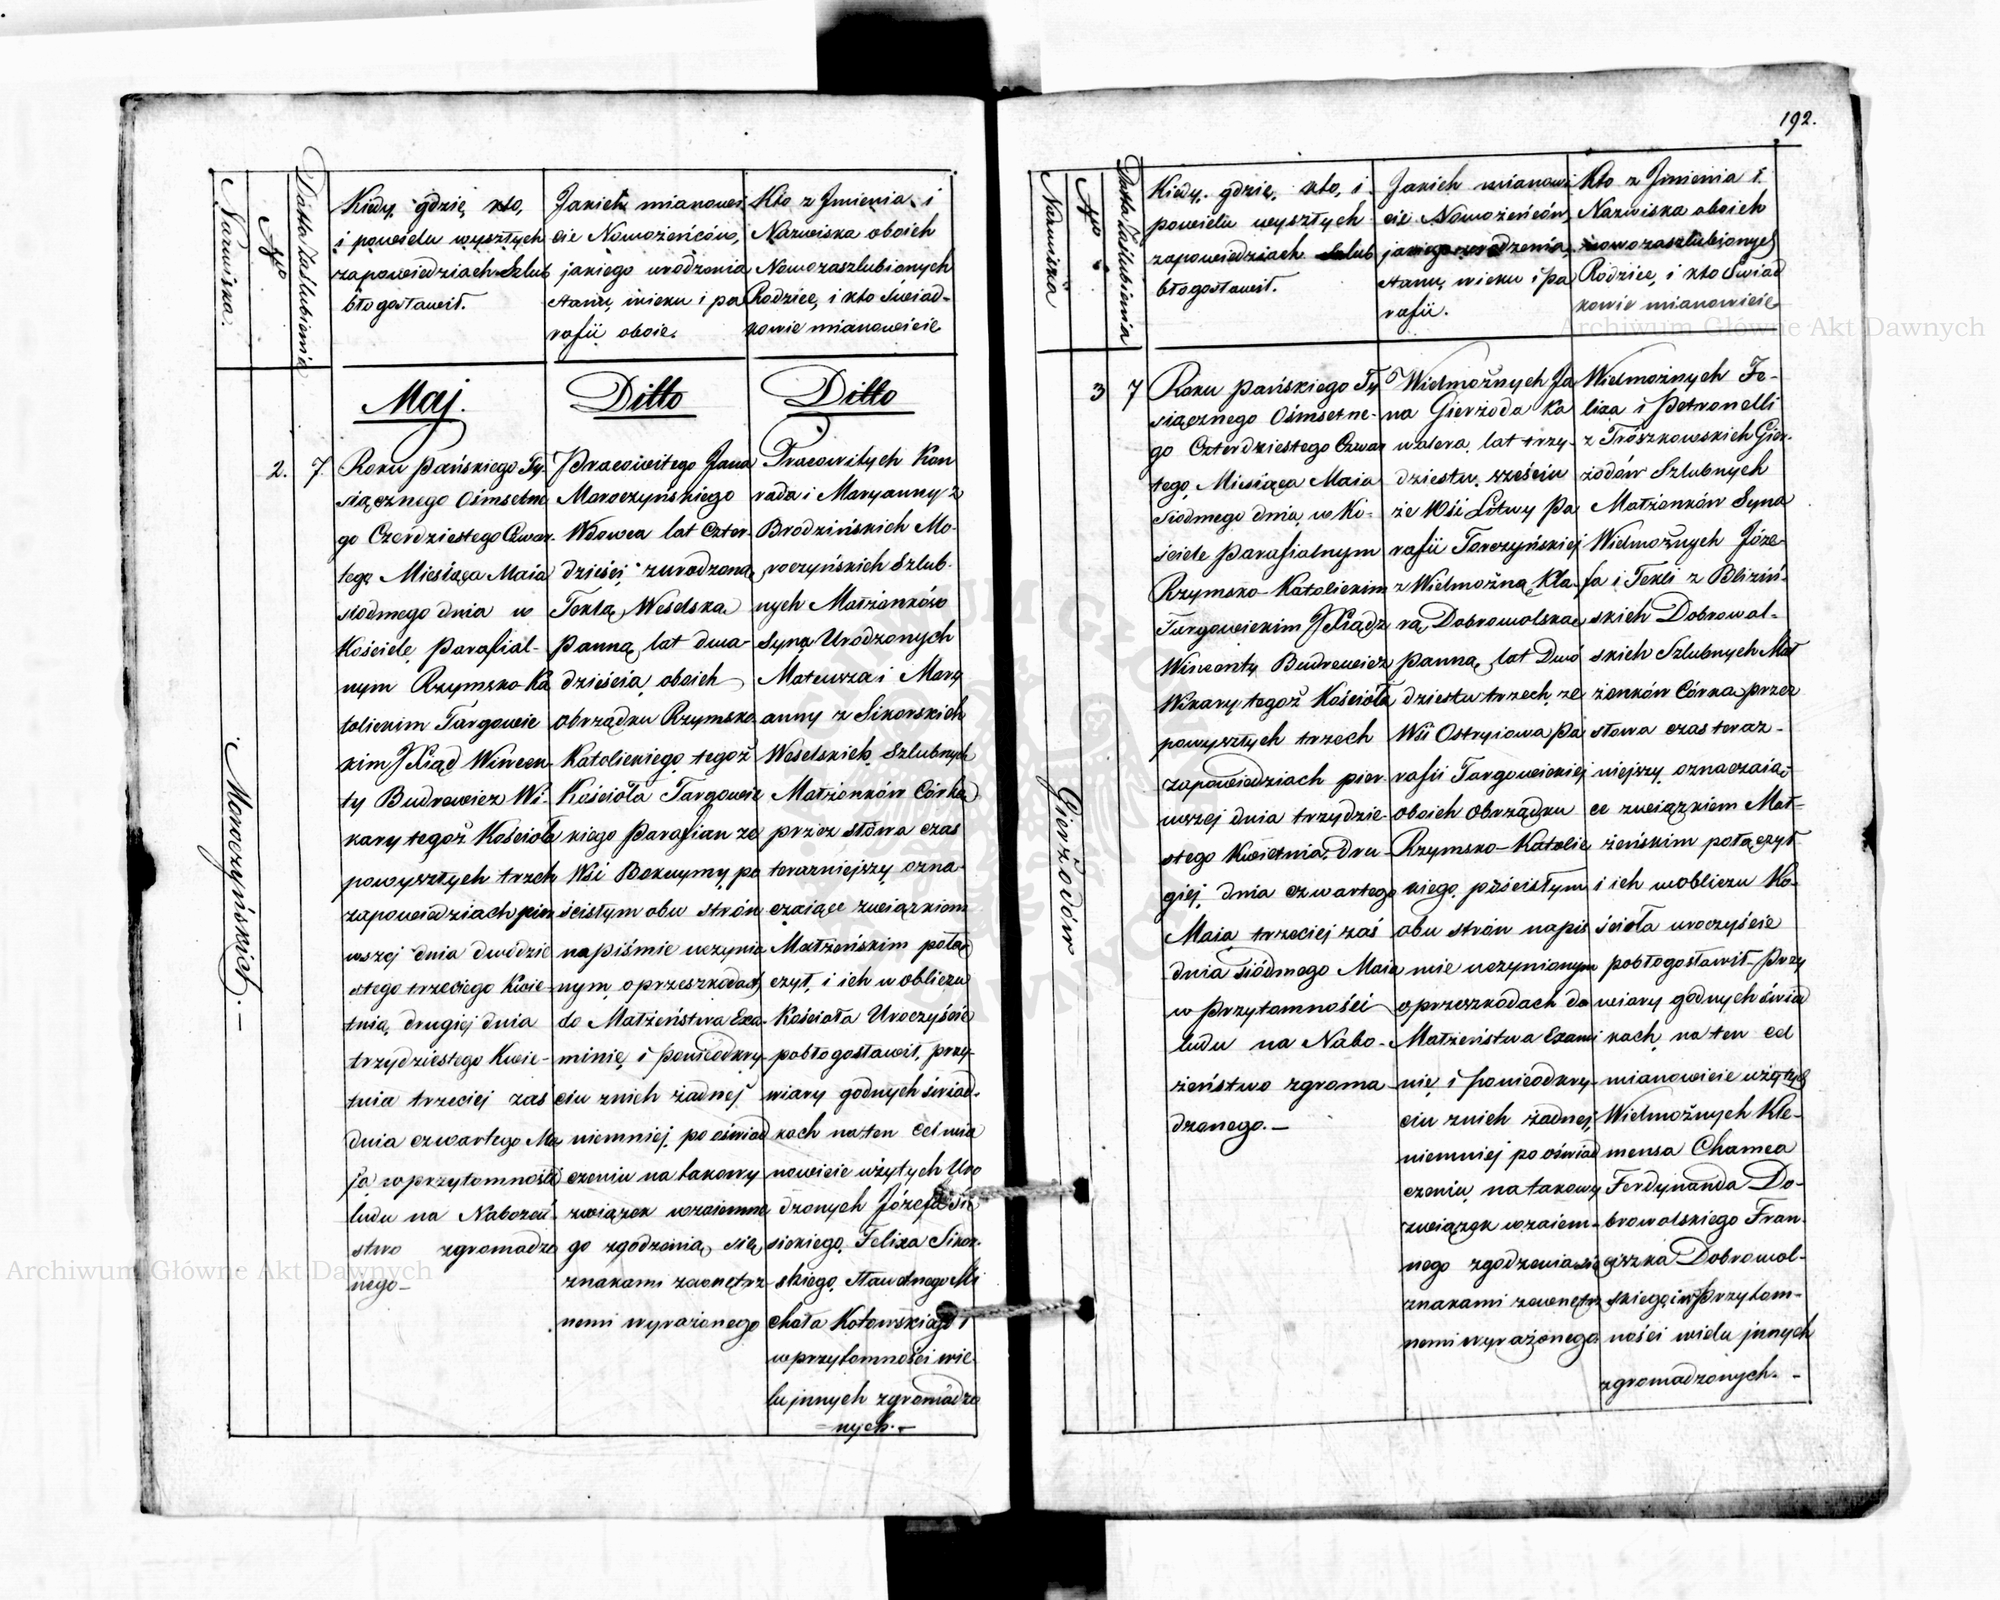 Nazwiska.
No
Datta Zaślubienia
Kiedy, gdzie, kto,
i powielu wyszłych
zapowiedziach Szlub
błogosławił.
Jakich mianowi
cie Nowożeńców,
jakiego urodzenia
stanu, wieku i pa
rafii oboie.
Kto z Jmienia i
Nazwiska oboich
Nowozaszlubionych
Rodzice, i kto Świad-
kowie mianowicie
Moroczyńskich. -
2.
7.
Maj.
Roku Pańskiego Ty-
siącznego Ośmsetne
go Czterdziestego Czwar-
tego Miesiąca Maia
siódmego dnia w
Kościele Parafial-
nym Rzymsko Ka
tolickim Targowic
kim JXiąd Wincen-
ty Budrewicz Wi-
kary tegoż Kościoła
powyszłych trzech
zapowiedziach pier
wszej dnia dwódzie
stego trzeciego Kwie-
tnia, drugiej dnia
trzydziestego Kwie-
tnia trzeciej zas
dnia czwartego Ma
ja w przytomności
ludu na Nabożeń-
stwo zgromadzo
nego -
Ditto
Pracowitego Jana
Moroczyńskiego
Wdowca lat Czter-
dzieści, zurodzoną
Teklą Weselską
Panną, lat dwa-
dzieścia, oboich
obrządku Rzymsko-
Katolickiego tegoż
Kościoła Targowic
kiego Parafian ze
Wsi Bokwymy po
ścisłym obu strón
napiśmie uczynio
nym, o przeszkodach
do Małżeństwa Exa-
minie, i ponieodkry-
ciu znich żadnej
niemniej, po oświad
czeniu na takowy
związek wzaiemne
go zgodzenia, się
znakami zewnętrz
nemi wyrażonego
Ditto
Pracowitych Kon
rada i Maryanny z
Brodzińskich Mo-
roczyńskich Szlub-
nych Małżonków
Syna Urodzonych
Mateusza i Mary
anny z Sikorskich
Weselskich Szlubnych
Małżonków Córką
przez słowa czas
teraznieyszy ozna-
czaiące związkiem
Małżeńskim połą
czył, i ich w obliczu
Kościoła Uroczyście
pobłogosławił, przy-
wiary godnych świad-
kach na ten Cel mia
nowicie użytych Uro
dzonych Józefa
sickiego, Felixa Sikor-
skiego, sławetnego Mi
chała Kotowskiego i
w przytomności wie
lu jnnych zgromadzo
nych. -
192.
Nazwiska
No
Datta Zaślubienia
Kiedy, gdzie, kto, i
powielu wyszłych
zapowiedziach Szlub
błogosławił.
Jakich mianowi
cie Nowożeńców,
jakiego urodzenia,
stanu, wieku i pa
rafii.
Kto z Jmienia i
Nazwiska oboich
nowozaszlubionych
Rodzice, i kto Świad
kowie mianowicie
Gierżodów
3
7
Roku Pańskiego Ty-
siącznego Ośmsetne-
go Czterdziestego Czwar
tego, Miesiąca Maia
siódmego dnia, w Ko-
ściele Parafialnym
Rzymsko-Katolickim
Targowickim JXiądz
Wincenty Budrewicz
Wikary tegoż Kościoła
powyszłych trzech
zapowiedziach pier
wszej dnia trzydzie-
stego Kwietnia, dru-
giej, dnia czwartego
Maia, trzeciej zaś
dnia siódmego Maia
w Przytomności
ludu na Nabo-
żeństwo zgroma
dzonego. -
Wielmożnych Ja
na Gierżoda Ka
walera, lat trzy-
dziestu, sześciu
ze Wsi Litwy Pa
rafii Torczyńskiej
z Wielmożną Kla-
rą Dobrowolską
Panną, lat Dwó
dziestu trzech, ze
Wsi Ostryiowa Pa
rafii Targowickiej
oboich Obrządku
Rzymsko-Katolic
kiego, pościsłym
obu strón napiś
mie uczynionym
o przeszkodach do
Małżeństwa Exami
nie, i ponieodkry-
ciu znich żadnej,
niemniej po oświad
czeniu, na takowy
związek wzaiem-
nego zgodzenia się
znakami zewnętrz
nemi wyrażonego
Wielmożnych Fe-
lixa i Petronelli
z Troszkowskich Gier-
żodów Szlubnych
Małżonków Syna
Wielmożnych Józe-
fa i Tekli z Bliziń-
skich Dobrowol-
skich Szlubnych Mał
żonków Córka, przez
słowa czas teraz-
niejszy oznaczaią-
ce związkiem Mał-
żeńskim połączył
i ich wobliczu Ko-
ścioła uroczyście
pobłogosławił przy
wiary godnych świad
kach, na ten cel
mianowicie użytych
Wielmożnych Kle-
mensa Chamca
Ferdynanda Do-
browolskiego Fran-
ciszka Dobrowol-
skiego, i w Przytom-
ności wielu jnnych
zgromadzonych. -
Archiwum Główne Akt Dawnych
Archiwum Główne Akt Dawnych